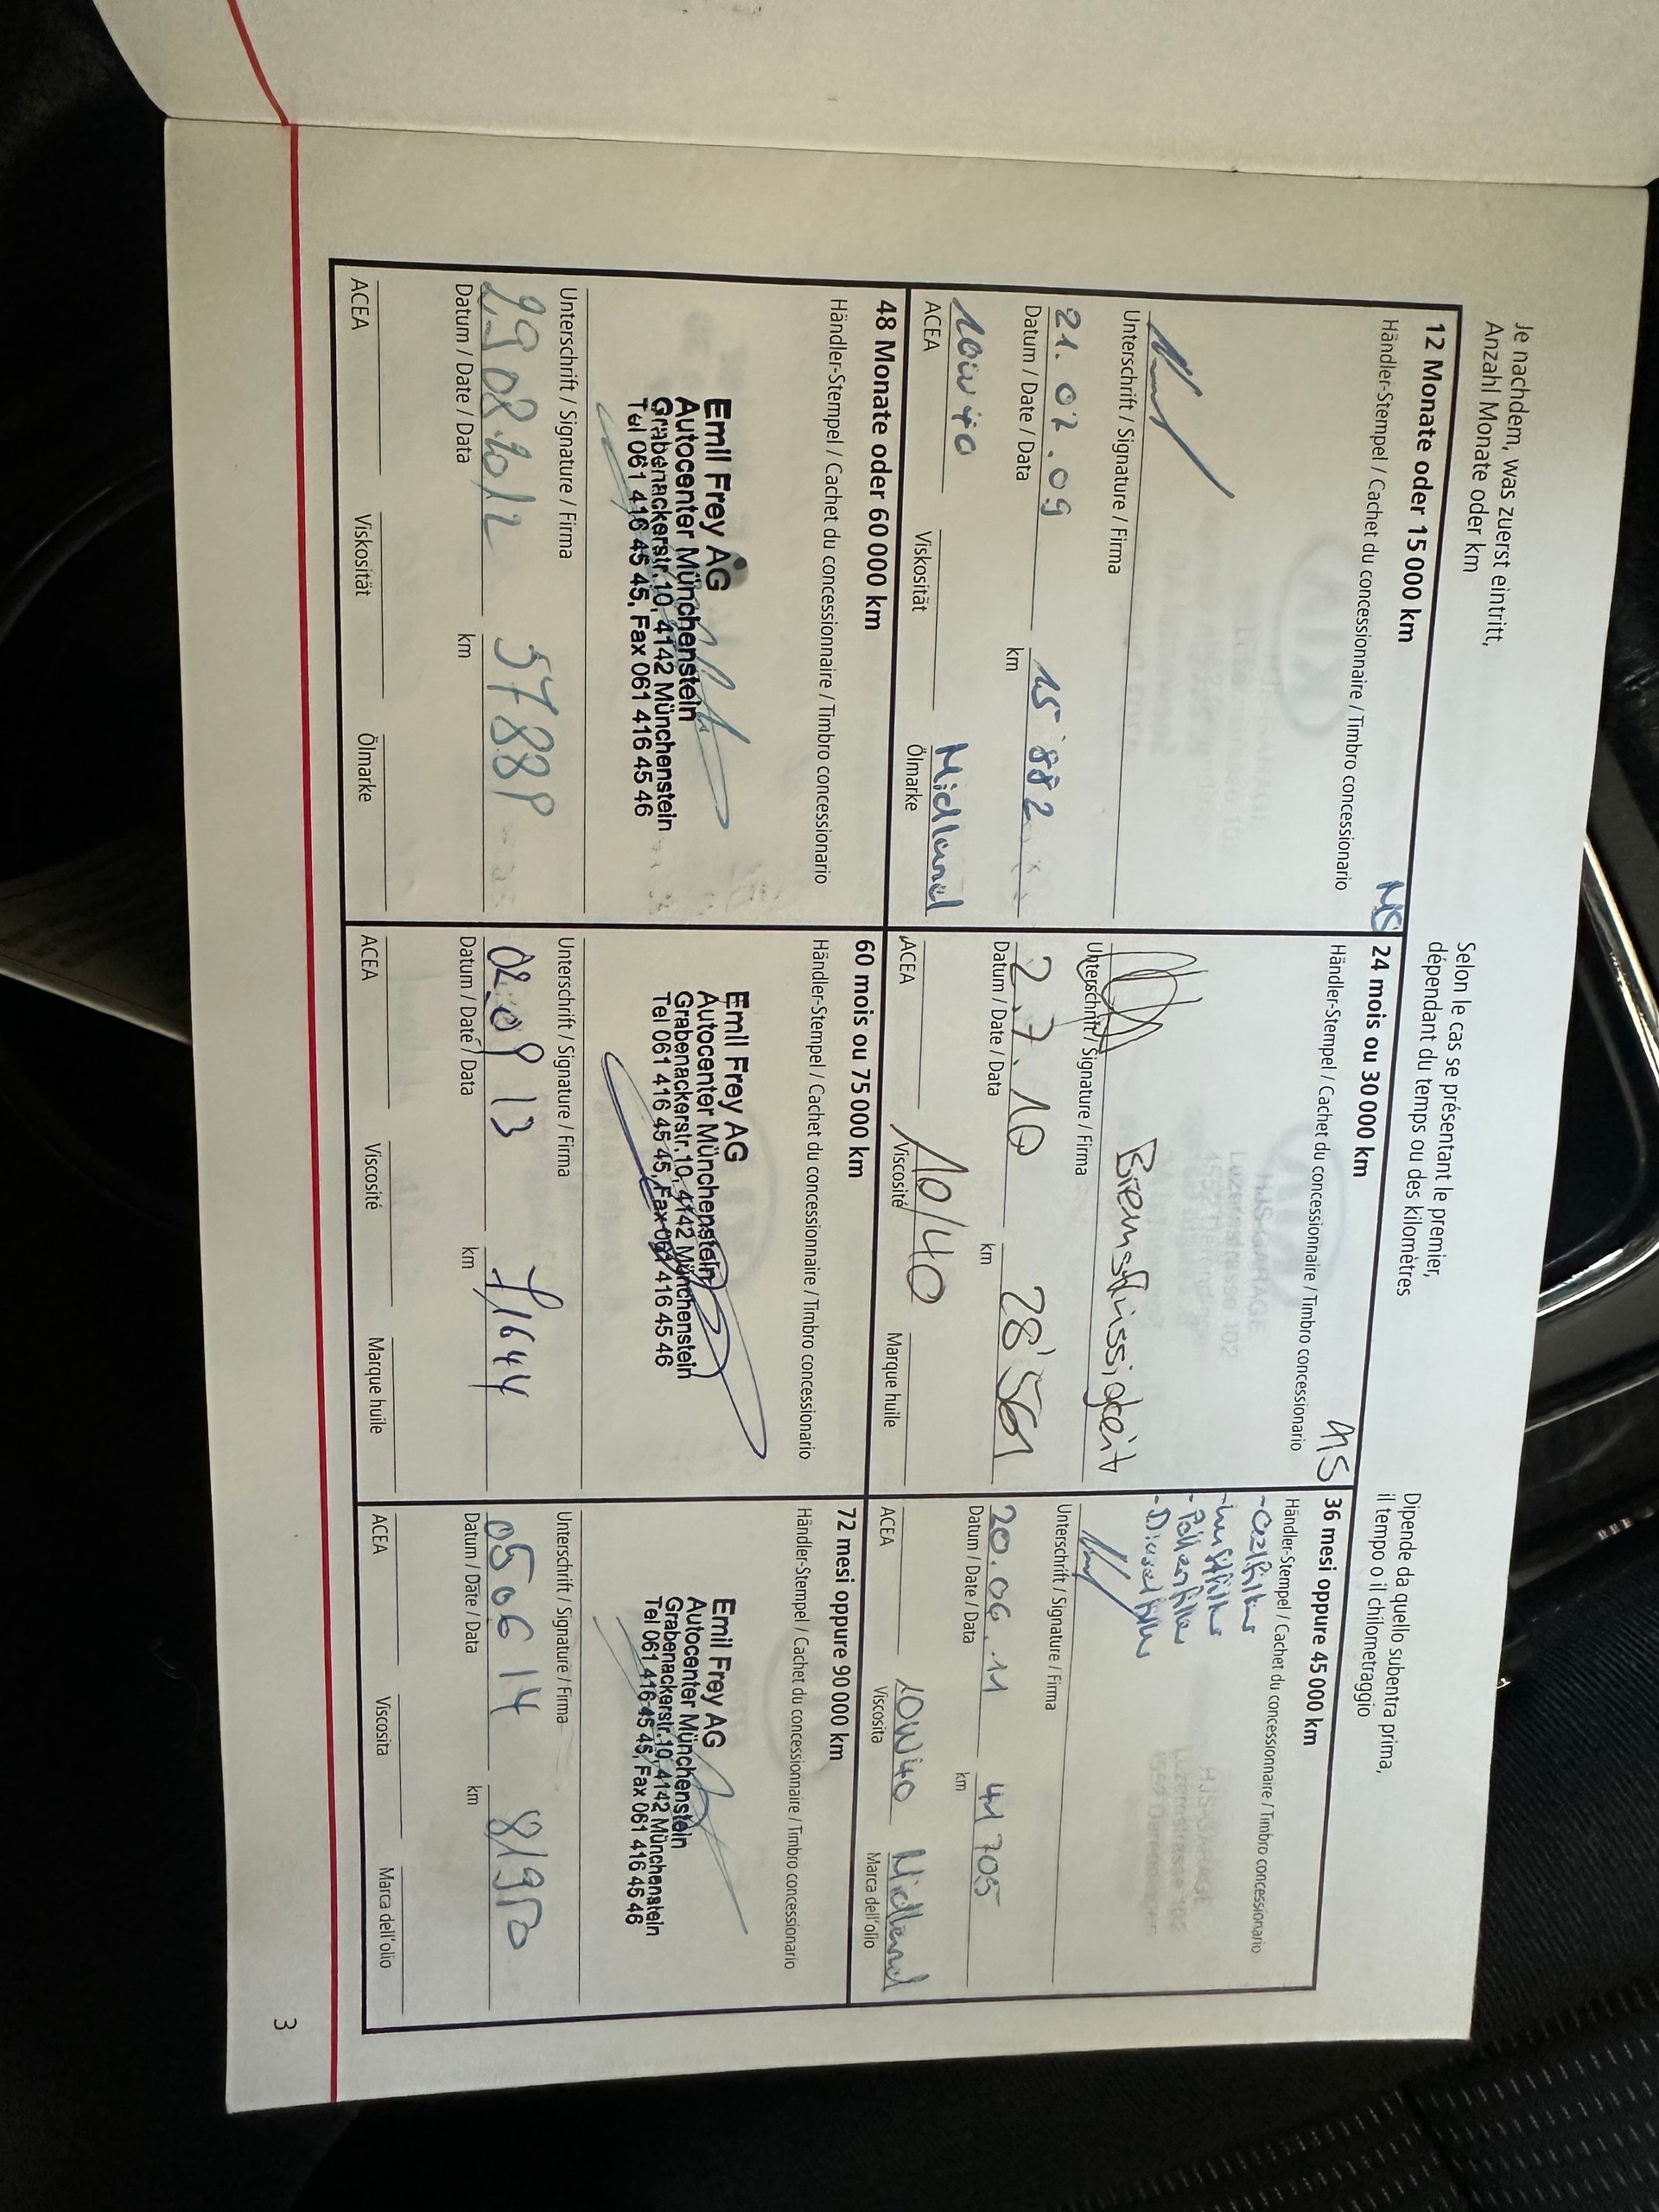 Je nachdem, was zuerst eintritt,
Anzahl Monate oder km
Selon le cas se présentant le premier,
dépendant du temps ou des kilomètres
Dipende da quello subentra prima,
il tempo o il chilometraggio
12 Monate oder 15 000 km
MS
Händler-Stempel / Cachet du concessionnaire / Timbro concessionario
Unterschrift / Signature / Firma
21.07.09
15'882
Datum / Date / Data
km
10W40
Midland
ACEA
Viskosität
Ölmarke
24 mois ou 30 000 km
MS
Händler-Stempel / Cachet du concessionnaire / Timbro concessionario
Bremsflüssigkeit
Unterschrift / Signature / Firma
2.7.10
28'561
Datum / Date / Data
km
10/40
ACEA
Viscosité
Marque huile
36 mesi oppure 45 000 km
Händler-Stempel / Cachet du concessionnaire / Timbro concessionario
- Oelfilter
- Luftfilter
- Pollenfilter
- Dieselfilter
Unterschrift / Signature / Firma
20.06.11
41 705
Datum / Date / Data
km
10W40
Midland
ACEA
Viscosita
Marca dell'olio
48 Monate oder 60 000 km
Händler-Stempel / Cachet du concessionnaire / Timbro concessionario
Emil Frey AG
Autocenter Münchenstein
Grabenackerstr.10, 4142 Münchenstein
Tel 061 416 45 45, Fax 061 416 45 46
Unterschrift / Signature / Firma
29.08.2012
Datum / Date / Data
km
ACEA
Viskosität
Ölmarke
60 mois ou 75 000 km
Händler-Stempel / Cachet du concessionnaire / Timbro concessionario
Emil Frey AG
Autocenter Münchenstein
Grabenackerstr.10, 4142 Münchenstein
Tel 061 416 45 45, Fax 061 416 45 46
Unterschrift / Signature / Firma
02.09 13
71644
Datum / Date / Data
km
ACEA
Viscosité
Marque huile
72 mesi oppure 90 000 km
Händler-Stempel / Cachet du concessionnaire / Timbro concessionario
Emil Frey AG
Autocenter Münchenstein
Grabenackerstr.10, 4142 Münchenstein
Tel 061 416 45 45, Fax 061 416 45 46
Unterschrift / Signature / Firma
05 06 14
Datum / Date / Data
km
ACEA
Viscosita
Marca dell'olio
3